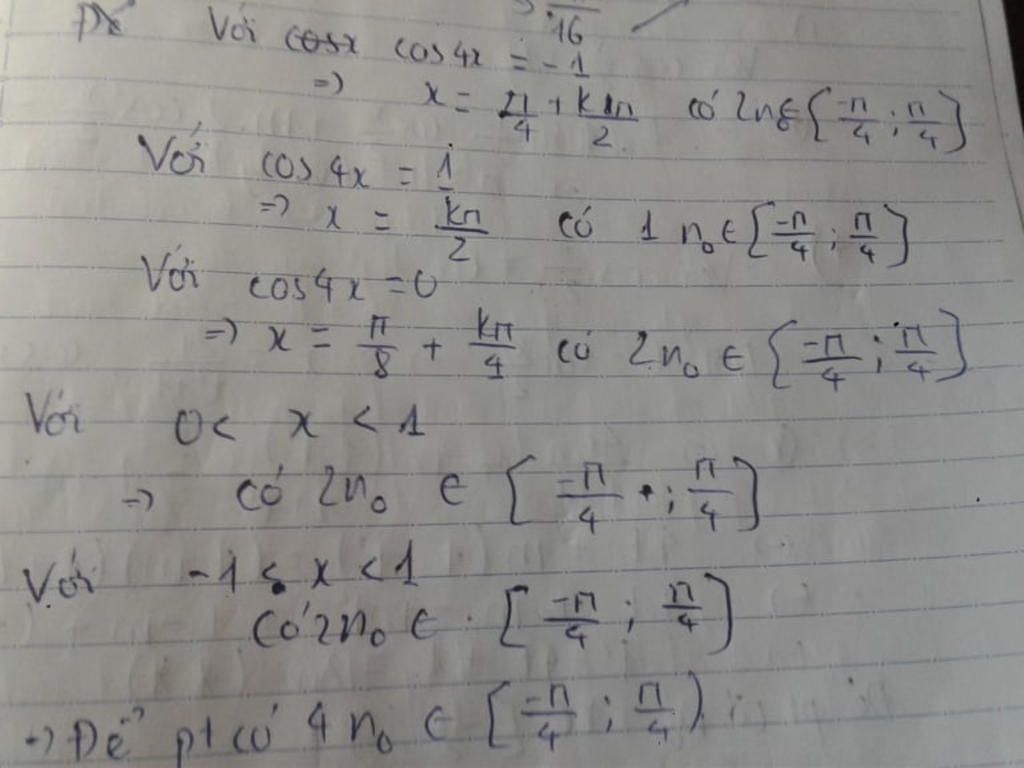 16
Để Với cosx cos4x = -1
=> x = π/4 + kπ/2 có 2n₀ ∈ [-π/4 ; π/4]
Với cos4x = 1
=> x = kπ/2 có 1 n₀ ∈ [-π/4 ; π/4]
Với cos4x = 0
=> x = π/8 + kπ/4 có 2n₀ ∈ [-π/4 ; π/4]
Với 0 < x < 1
=> có 2n₀ ∈ [-π/4 ; π/4]
Với -1 ≤ x < 1
có 2n₀ ∈ [-π/4 ; π/4]
=> Để pt có 4 n₀ ∈ [-π/4 ; π/4)